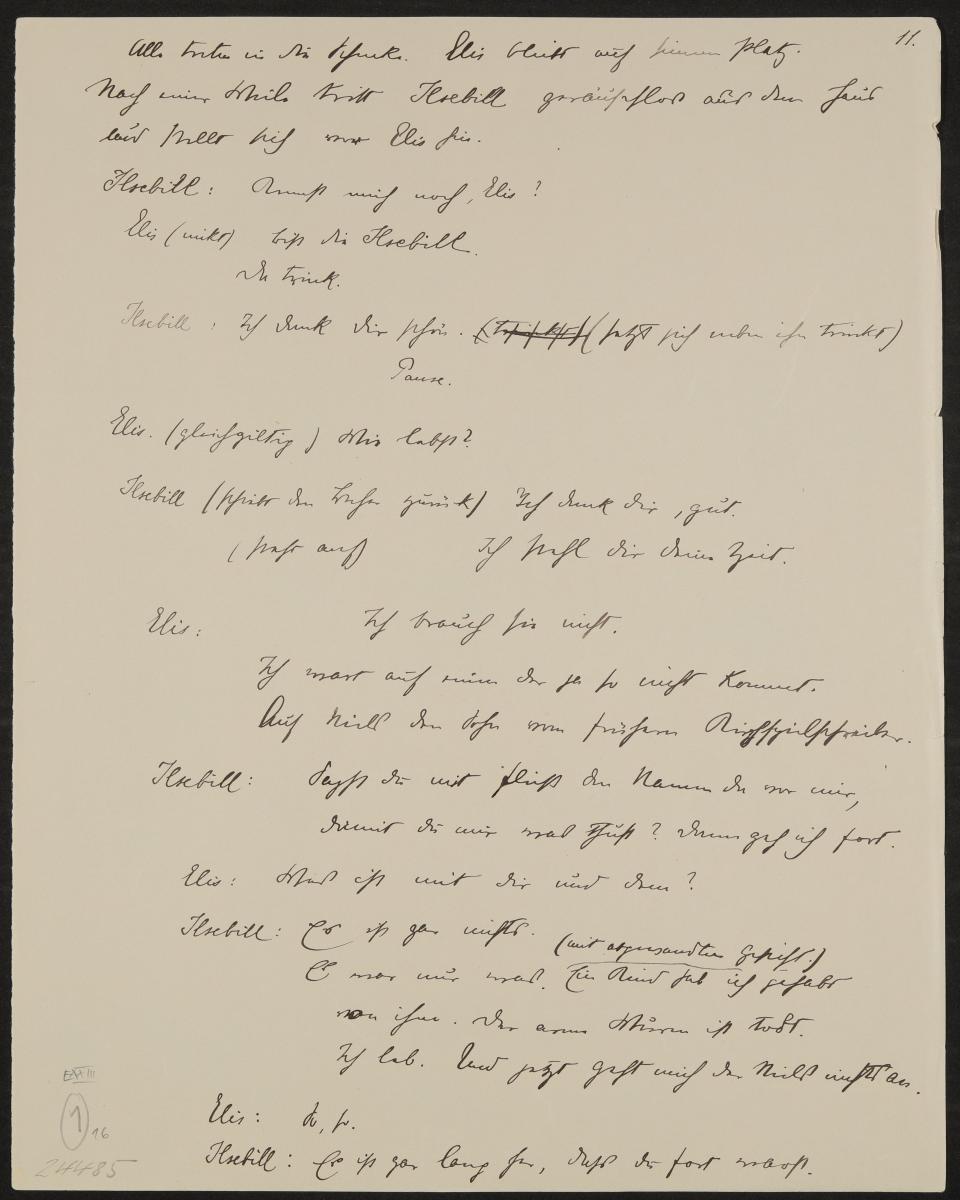 11.
Alle treten in die Schenke. Elis bleibt auf seinem Platz.
Nach einer Weile tritt Ilsebill geräuschlos aus dem Haus
und stellt sich vor Elis hin.
Ilsebill: Kennst mich noch, Elis?
Elis (nickt) bist die Ilsebill.
Da trink.
Ilsebill: Ich dank dir schön. (setzt sich neben ihn trinkt)
Pause.
Elis. (gleichgiltig) Wie lebst?
Ilsebill (schiebt den Becher zurück) Ich dank dir, gut.
(steht auf) Ich stehl dir deine Zeit.
Elis: Ich brauch sie nicht.
Ich wart auf einen der ja so nicht kommt.
Auf Niels den Sohn vom frühern Kirchspielschreiber.
Ilsebill: Sagst du mit Fleiß den Namen da vor mir,
damit du mir was thust? Dann geh ich fort.
Elis: Was ist mit dir und dem?
Ilsebill: Es ist gar nichts.
(mit abgewandtem Gesicht.)
Es war nur was. Ein Kind hab ich gehabt
von ihm. Der arme Wurm ist todt.
Ich leb. Und jetzt geht mich der Niels nichts an.
Elis: So, so.
Ilsebill: Es ist gar lang her, dass du fort warst.
EXIII
1
16
24485